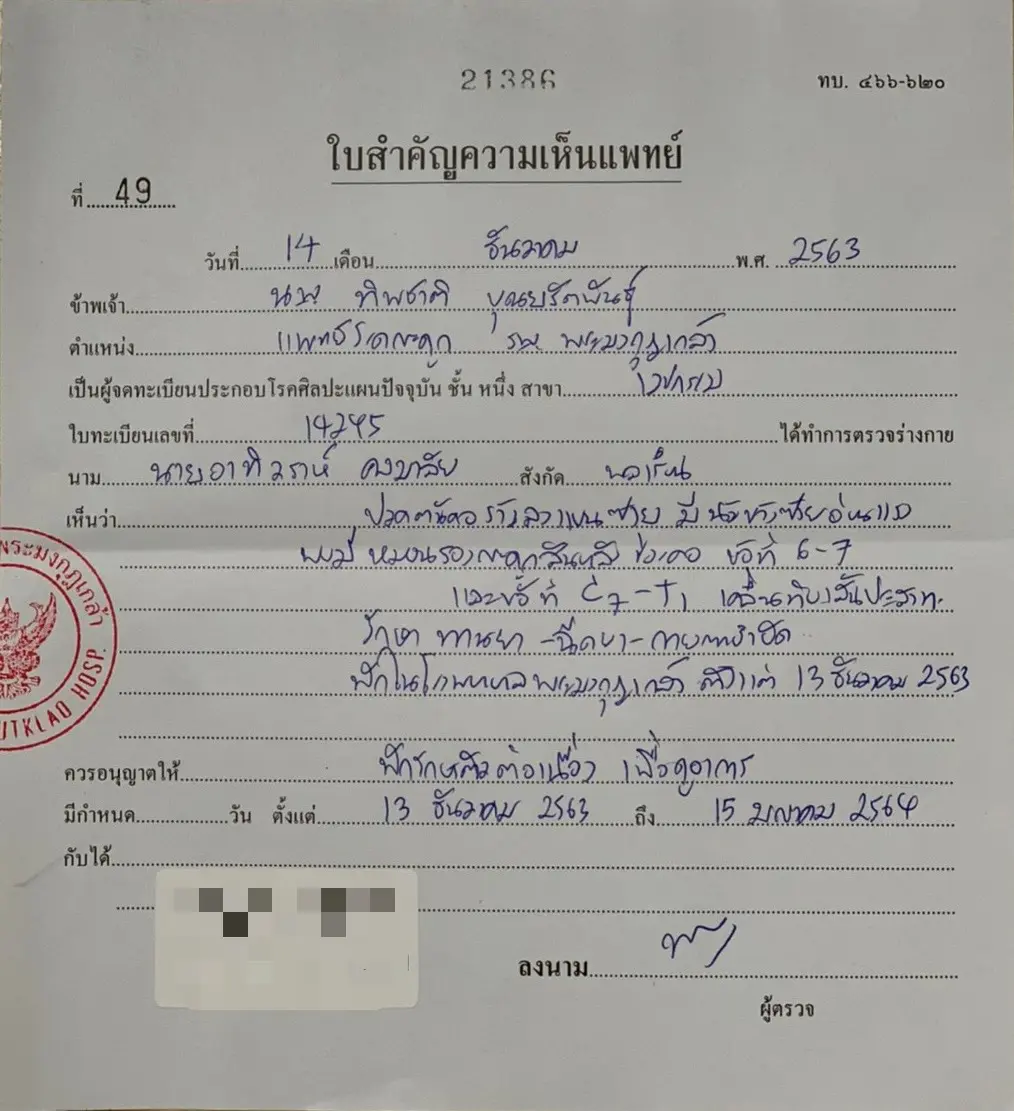 21386
ทบ. ๔๖๖-๖๒๐
ใบสำคัญความเห็นแพทย์
ที่ 49
วันที่ 14 เดือน ธันวาคม พ.ศ. 2563
ข้าพเจ้า นพ ทิพชาติ บุณยรัตพันธุ์
ตำแหน่ง แพทย์ รพ พระมงกุฎเกล้า
เป็นผู้จดทะเบียนประกอบโรคศิลปะแผนปัจจุบัน ชั้น หนึ่ง สาขา เวชกรรม
ใบทะเบียนเลขที่ 14245 ได้ทำการตรวจร่างกาย
นาม นายอาทิวราห์ คงมาลัย สังกัด พลเรือน
เห็นว่า ปวดต้นคอร้าวลงแขนซ้าย มีนิ้วข้างซ้ายอ่อนแรง
พบมี หมอนรองกระดูกสันหลัง ช่วงคอ ข้อที่ 6-7
และข้อที่ C7-T1 เคลื่อนทับเส้นประสาท
รักษา ทานยา -ฉีดยา- กายภาพบำบัด
พักในโรงพยาบาลพระมงกุฎเกล้า ตั้งแต่ 13 ธันวาคม 2563
พระมงกุฎเกล้า
UTKLAO HOSP.
ควรอนุญาตให้ พักรักษาตัวต่อเนื่อง เพื่อดูอาการ
มีกำหนด วัน ตั้งแต่ 13 ธันวาคม 2563 ถึง 15 มกราคม 2564
กับได้
ลงนาม
ผู้ตรวจ